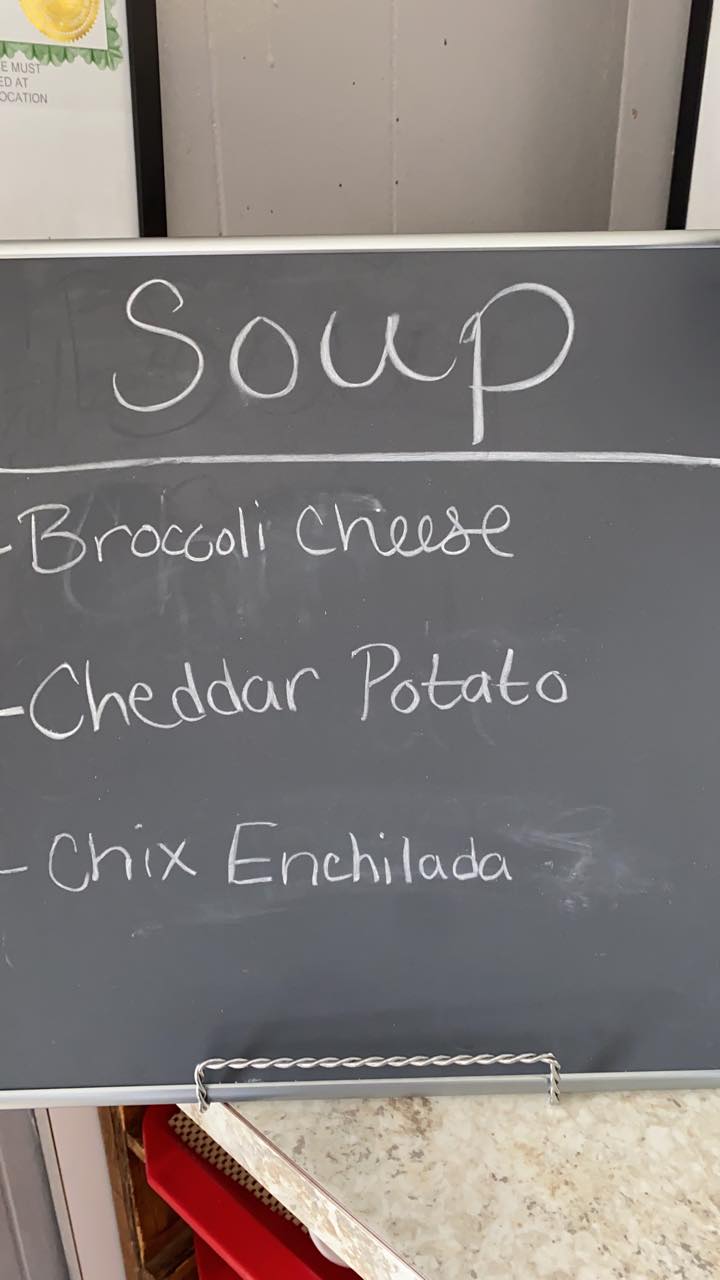 E MUST
ED AT
OCATION
Soup
-Broccoli Cheese
-Cheddar Potato
- Chix Enchilada